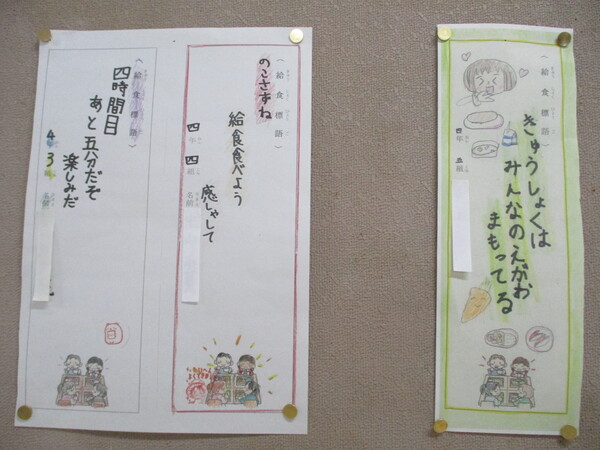 (給食標語)
きゅうしょくは
みんなのえがお
まもってる
四年 組
(給食標語)
のこさずね
給食食べよう
感しゃして
四年 四組 名前
(給食標語)
四時間目
あと五分だぞ
楽しみだ
4年 3組 名前